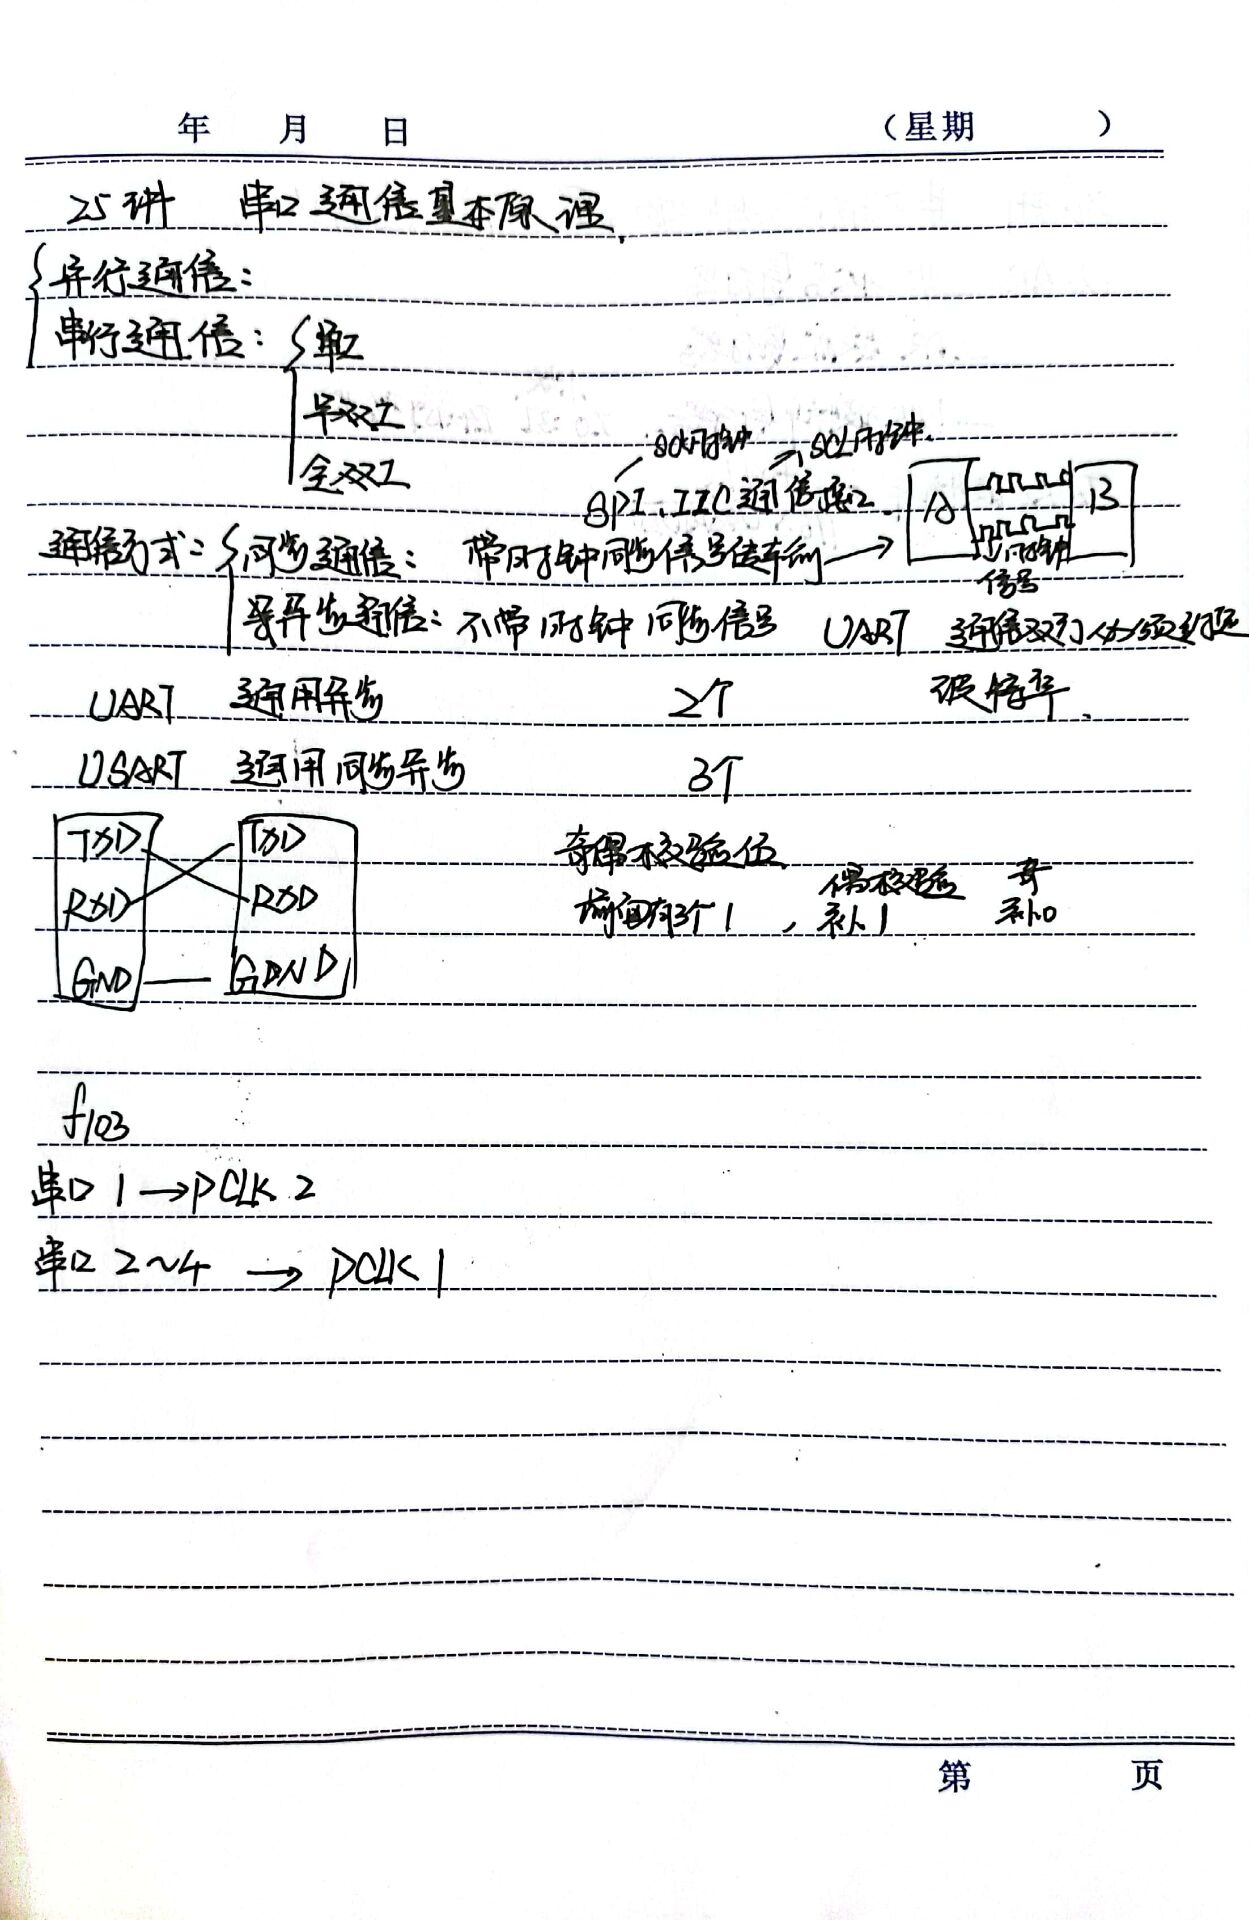 年 月 日 （星期 ）
25讲 串口通信基本原理
并行通信：
串行通信： 单工
半双工
全双工
SCK时钟 SCL时钟
SPI、IIC通信接口 A B
通信方式： 同步通信： 带时钟同步信号传输 时钟
信号
异步通信： 不带时钟同步信号 UART 通信双方必须约定
UART 通用异步 2个 波特率
USART 通用同步异步 3个
TXD TXD 奇偶校验位
RXD RXD 前面有3个1，偶校验 补1 奇 补0
GND GDND
f103
串口1→PCLK2
串口2~4 → PCLK1
第 页